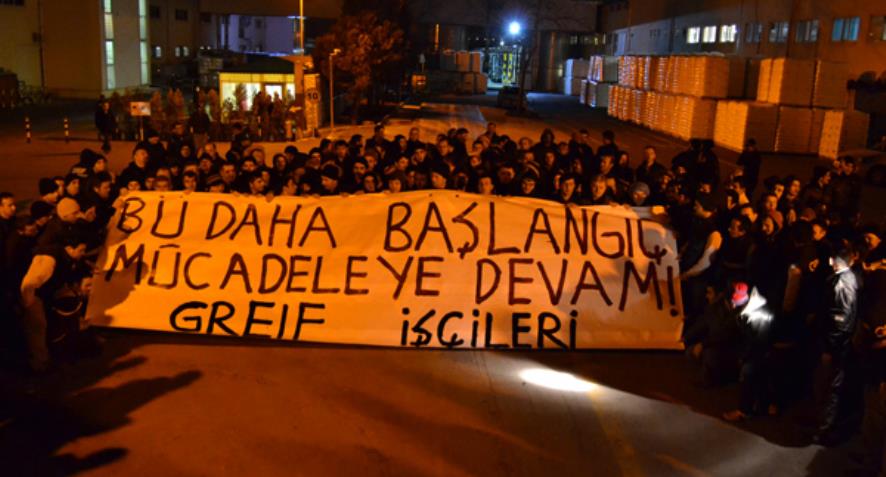 BÜ DAHA BAŞLANGIÇ
MÜCADELEYE DEVAM!
GREIF İŞÇİLERİ
10